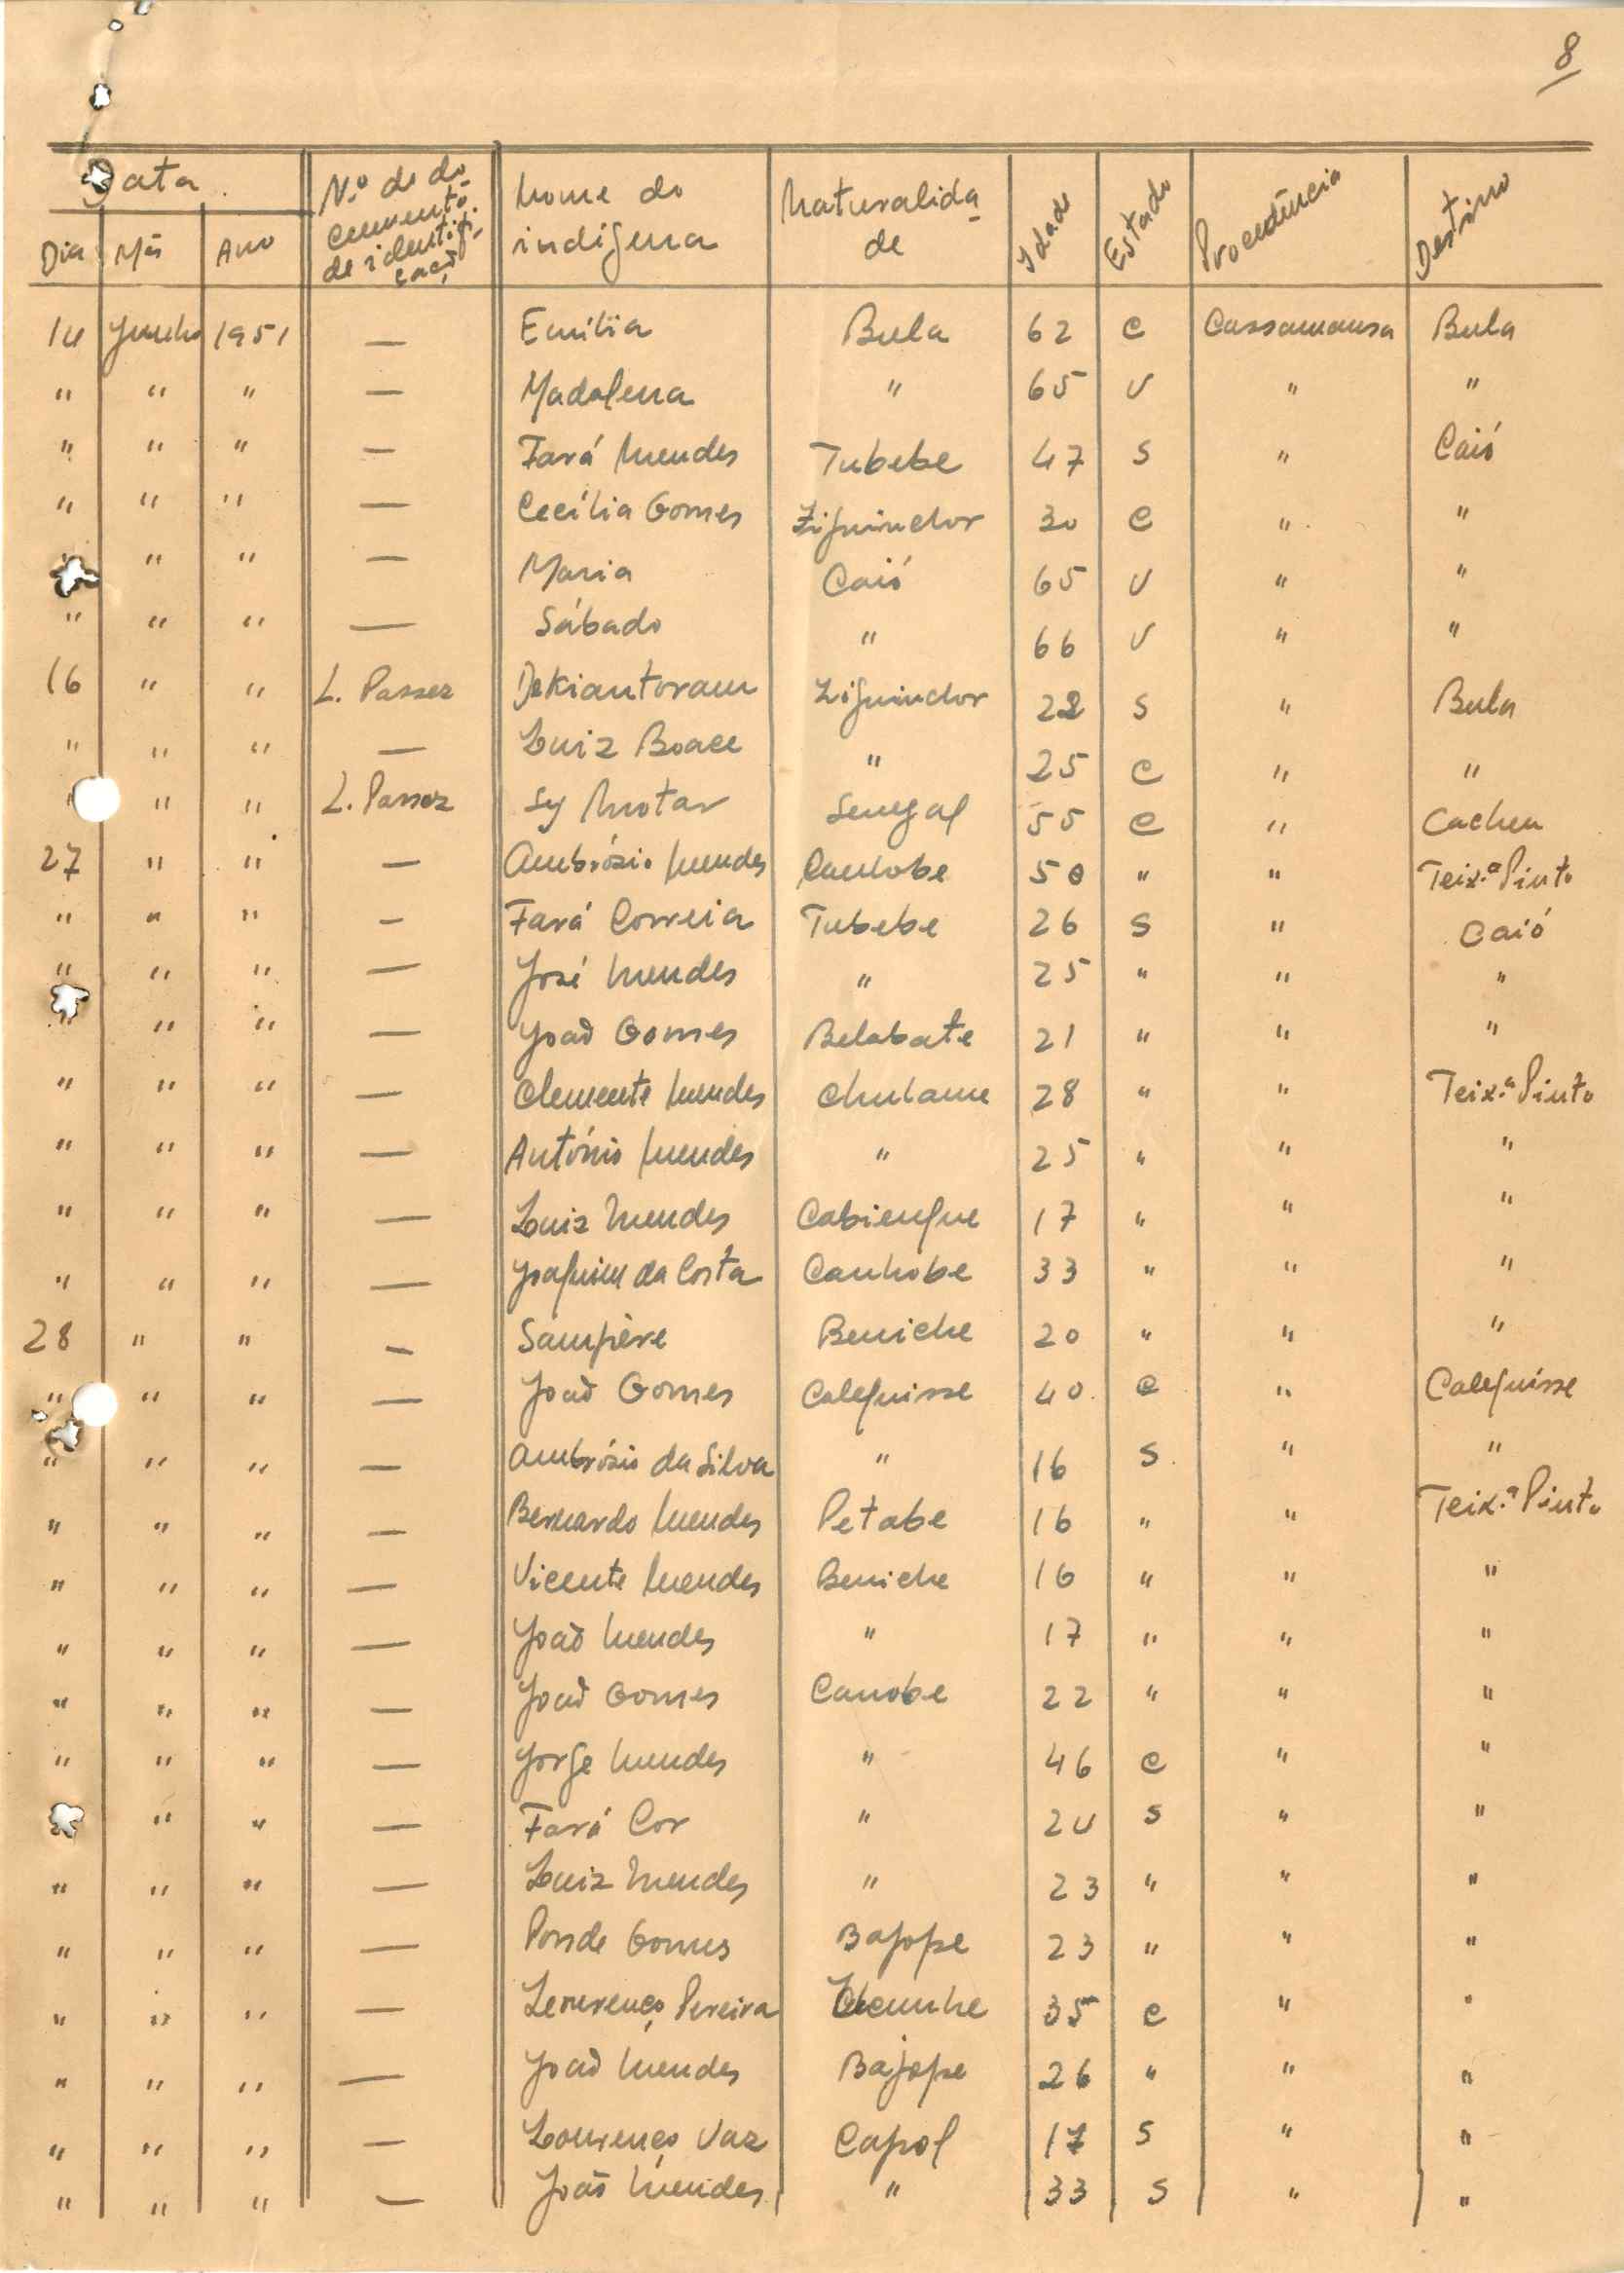 8
Data.
Dia Mês Ano Nº do do-cumento de identifi-cação Nome do indígena Naturalida-de Idade Estado Procedência Destino
14 Junho 1951 — Emília Bula 62 C Cassamansa Bula
" " " — Madalena " 65 V " "
" " " — Fará Mendes Tubebe 47 S " Caió
" " " — Cecília Gomes Ziguinchor 30 C " "
" " " — Maria Caió 65 V " "
" " " — Sábado " 66 V " "
16 " " L. Passez Dekiantoram Ziguinchor 22 S " Bula
" " " — Luiz Boace " 25 C " "
" " " L. Passez Sy Motar Senegal 55 C " Cacheu
27 " " — Ambrózio Mendes Canhobe 50 " " Teix.ª Pinto
" " " — Fará Correia Tubebe 26 S " Caió
" " " — José Mendes " 25 " " "
" " " — João Gomes Belabate 21 " " "
" " " — Clemente Mendes Chulame 28 " " Teix.ª Pinto
" " " — António Mendes " 25 " " "
" " " — Luiz Mendes Cabiengue 17 " " "
" " " — Joaquim da Costa Canhobe 33 " " "
28 " " — Sampère Beniche 20 " " "
" " " — João Gomes Calequisse 40 C " Calequisse
" " " — Ambrózio da Silva " 16 S " "
" " " — Bernardo Mendes Petabe 16 " " Teix.ª Pinto
" " " — Vicente Mendes Beniche 16 " " "
" " " — João Mendes " 17 " " "
" " " — João Gomes Canobe 22 " " "
" " " — Jorge Mendes " 46 C " "
" " " — Fará Cor " 24 S " "
" " " — Luiz Mendes " 23 " " "
" " " — Ponde Gomes Bajope 23 " " "
" " " — Lourenço Pereira 35 C " "
" " " — João Mendes Bajope 26 " " "
" " " — Lourenço Vaz Capol 17 S " "
" " " — João Mendes " 33 S " "